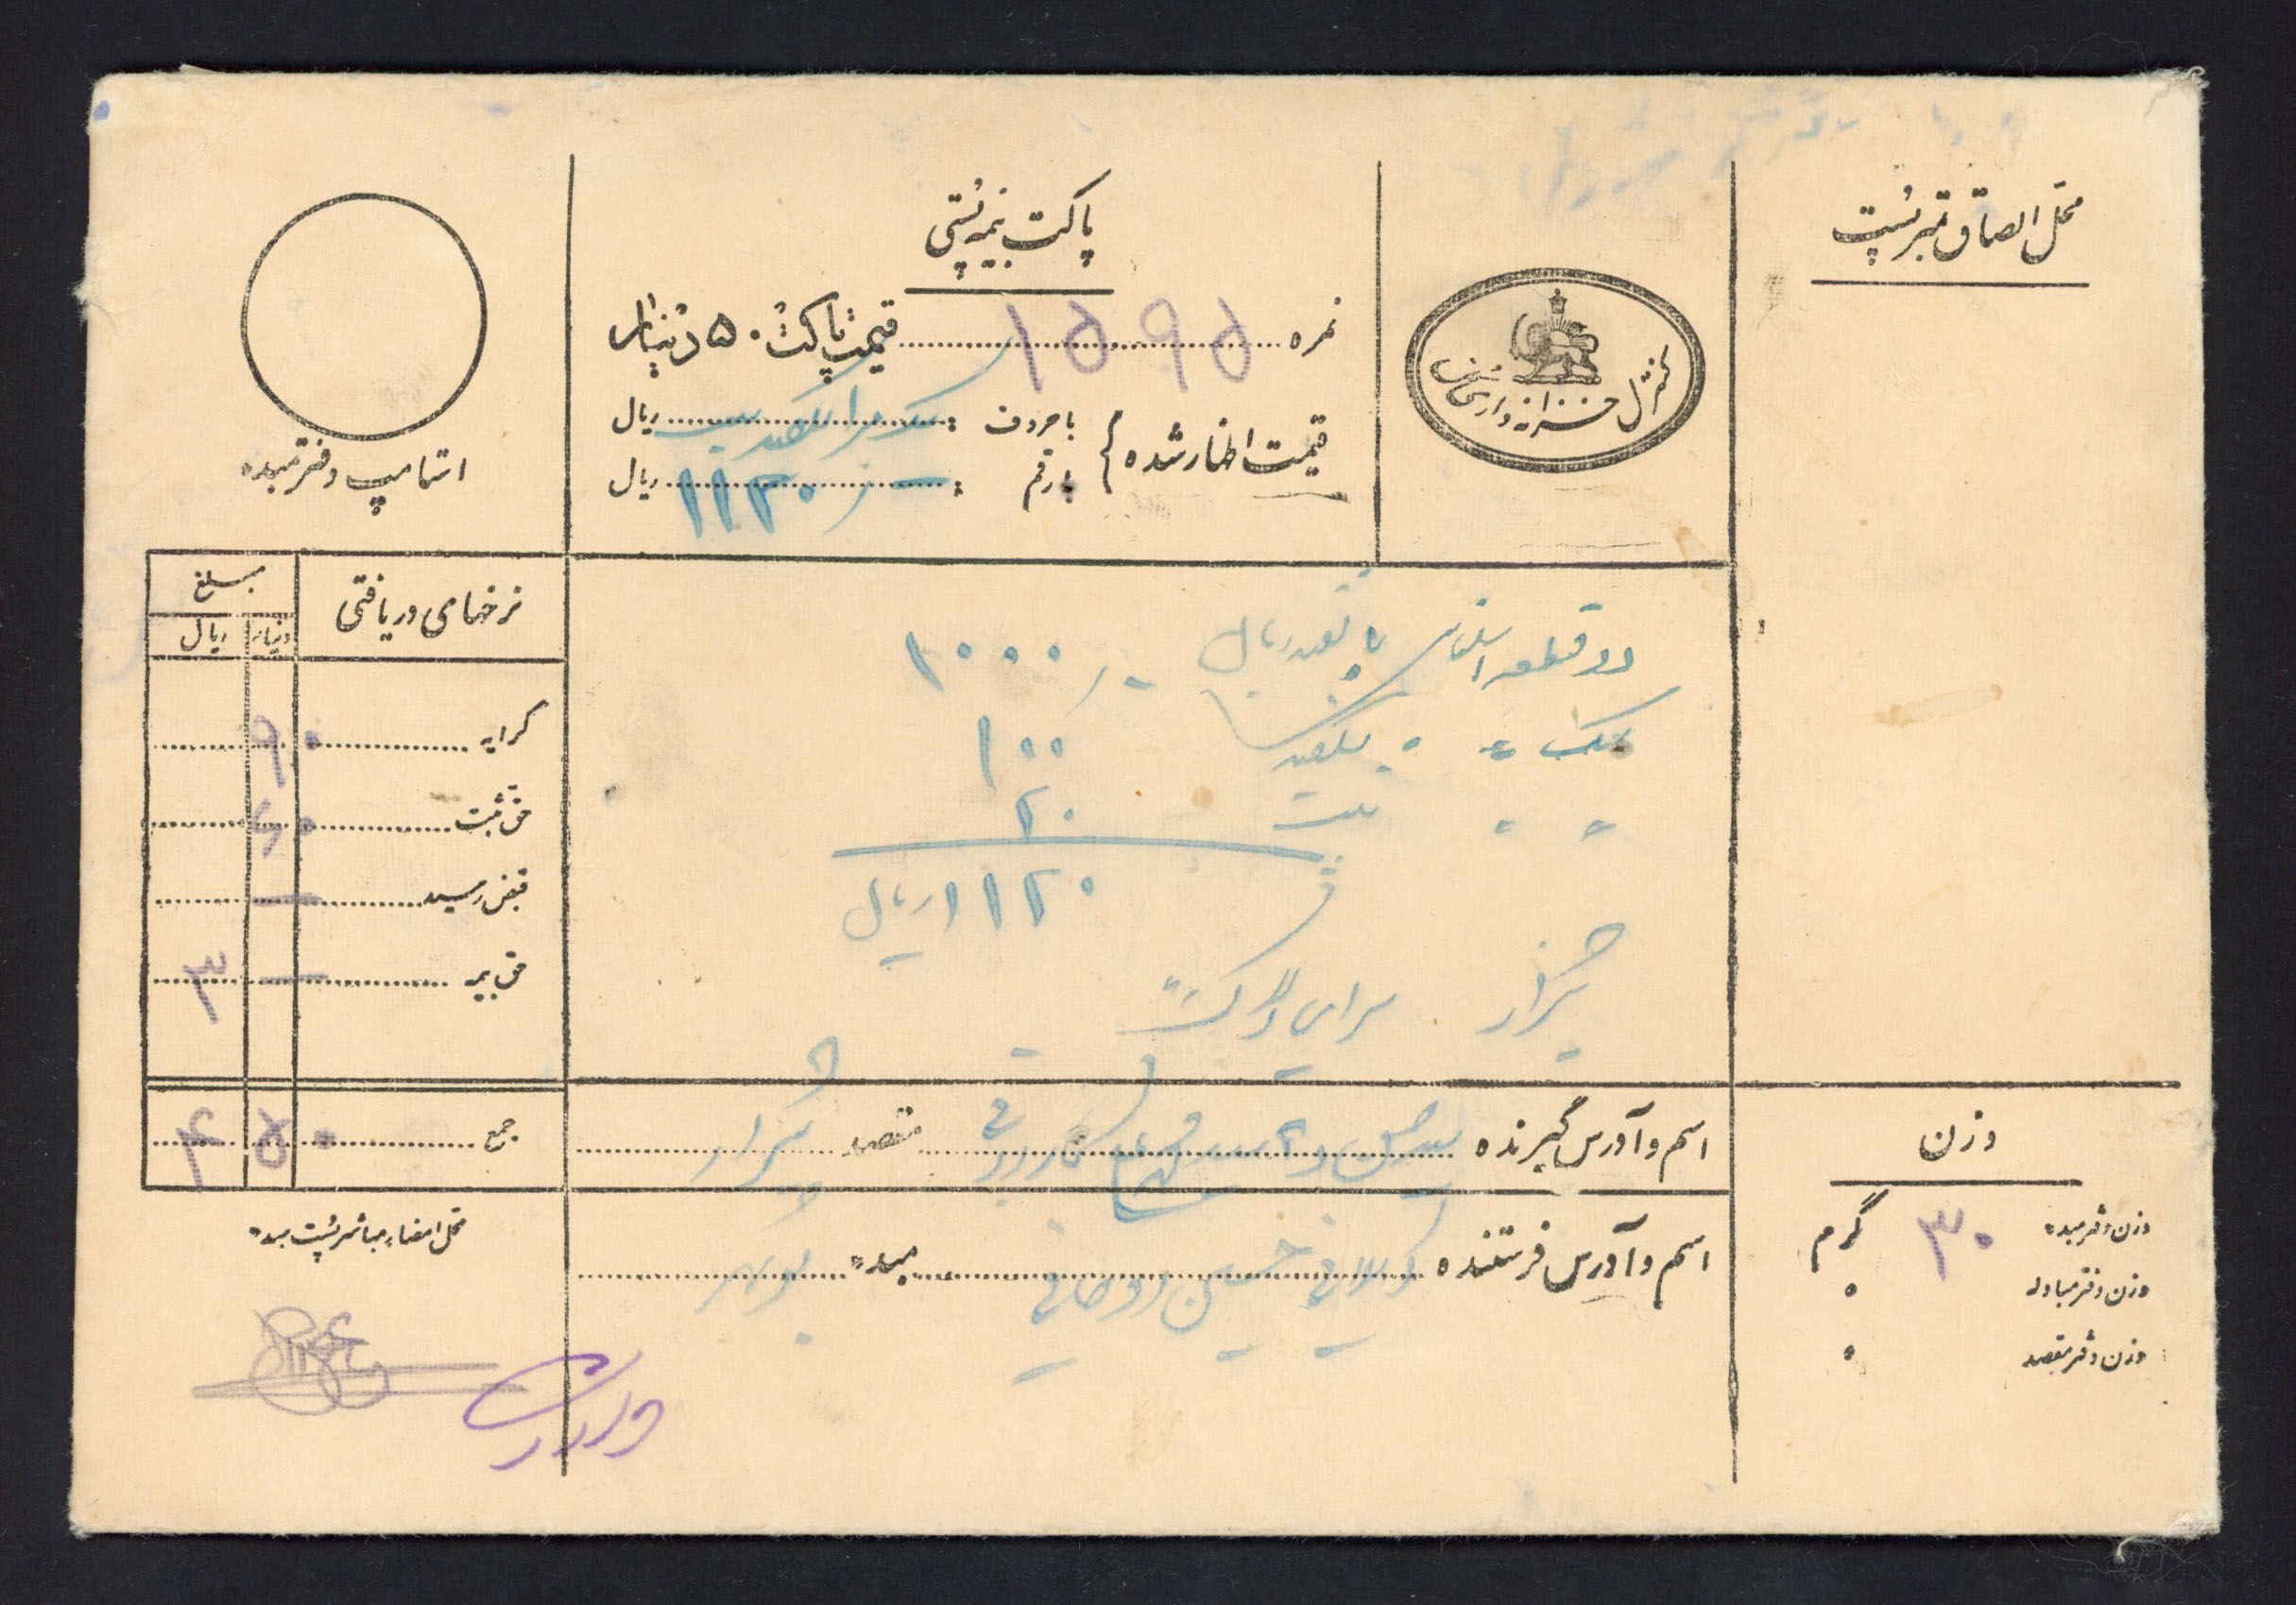 محل الصاق تمبر پست
کنترل خزانه‌داری
پاکت بیمه پستی
نمره ۱۵۹۵ قیمت پاکت ۵۰ دینار
قیمت اظهار شده { با حروف : یکهزار یکصد بیست ریال
برقم : ۱۱۲۰ ریال
استامپ دفتر مبدء
نرخهای دریافتی
مبلغ
دینار ریال
کرایه ۹۰
حق ثبت ۶۰
قبض رسید —
حق بیمه — ۳
جمع ۵۰ ۴
محل امضاء مباشر پست مبدء
دو قطعه اسکناس پانصد ریال ۱۰۰۰
یک " " یکصد ۱۰۰
" " بیست ۲۰
۱۱۲۰ ریال
شیراز سرای
اسم و آدرس گیرنده مقصد شیراز
اسم و آدرس فرستنده حسین مبدء
وزن
وزن دفتر مبدء ۳۰ گرم
وزن دفتر مبادله "
وزن دفتر مقصد "